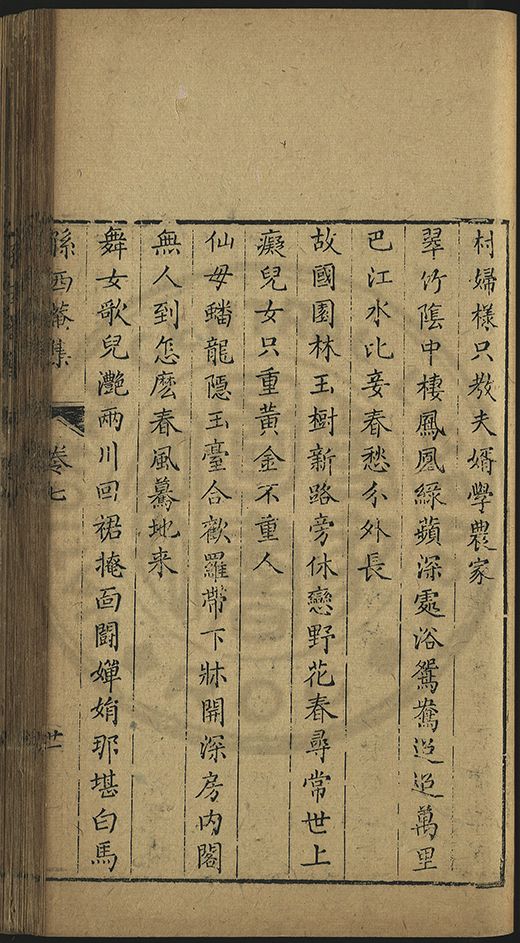 村婦様只教夫婿學農家
翠竹陰中棲鳳凰綠蘋深處浴鴛鴦迢迢萬里
巴江水比妾春愁分外長
故國園林玉樹新路旁休戀野花春尋常世上
癡兒女只重黃金不重人
仙母蟠龍隱玉臺合歡羅帶下牀開深房内閣
無人到怎麽春風驀地来
舞女歌兒灔兩川回裙掩面鬭嬋娟那堪白馬
孫西菴集 卷七 廿